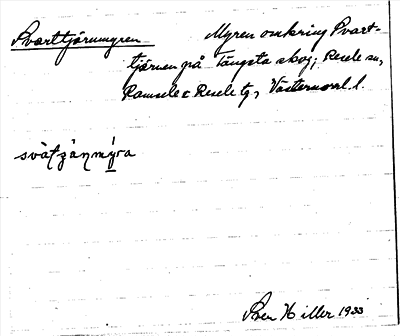 Svarttjärnmyren
Myren omkring Svart-
tjärnen på Tängsta skog; Resele sn,
Ramsele & Resele tg, Västernorrl. l.
svàt̯ʒänmýra
Sven Hiller 1933